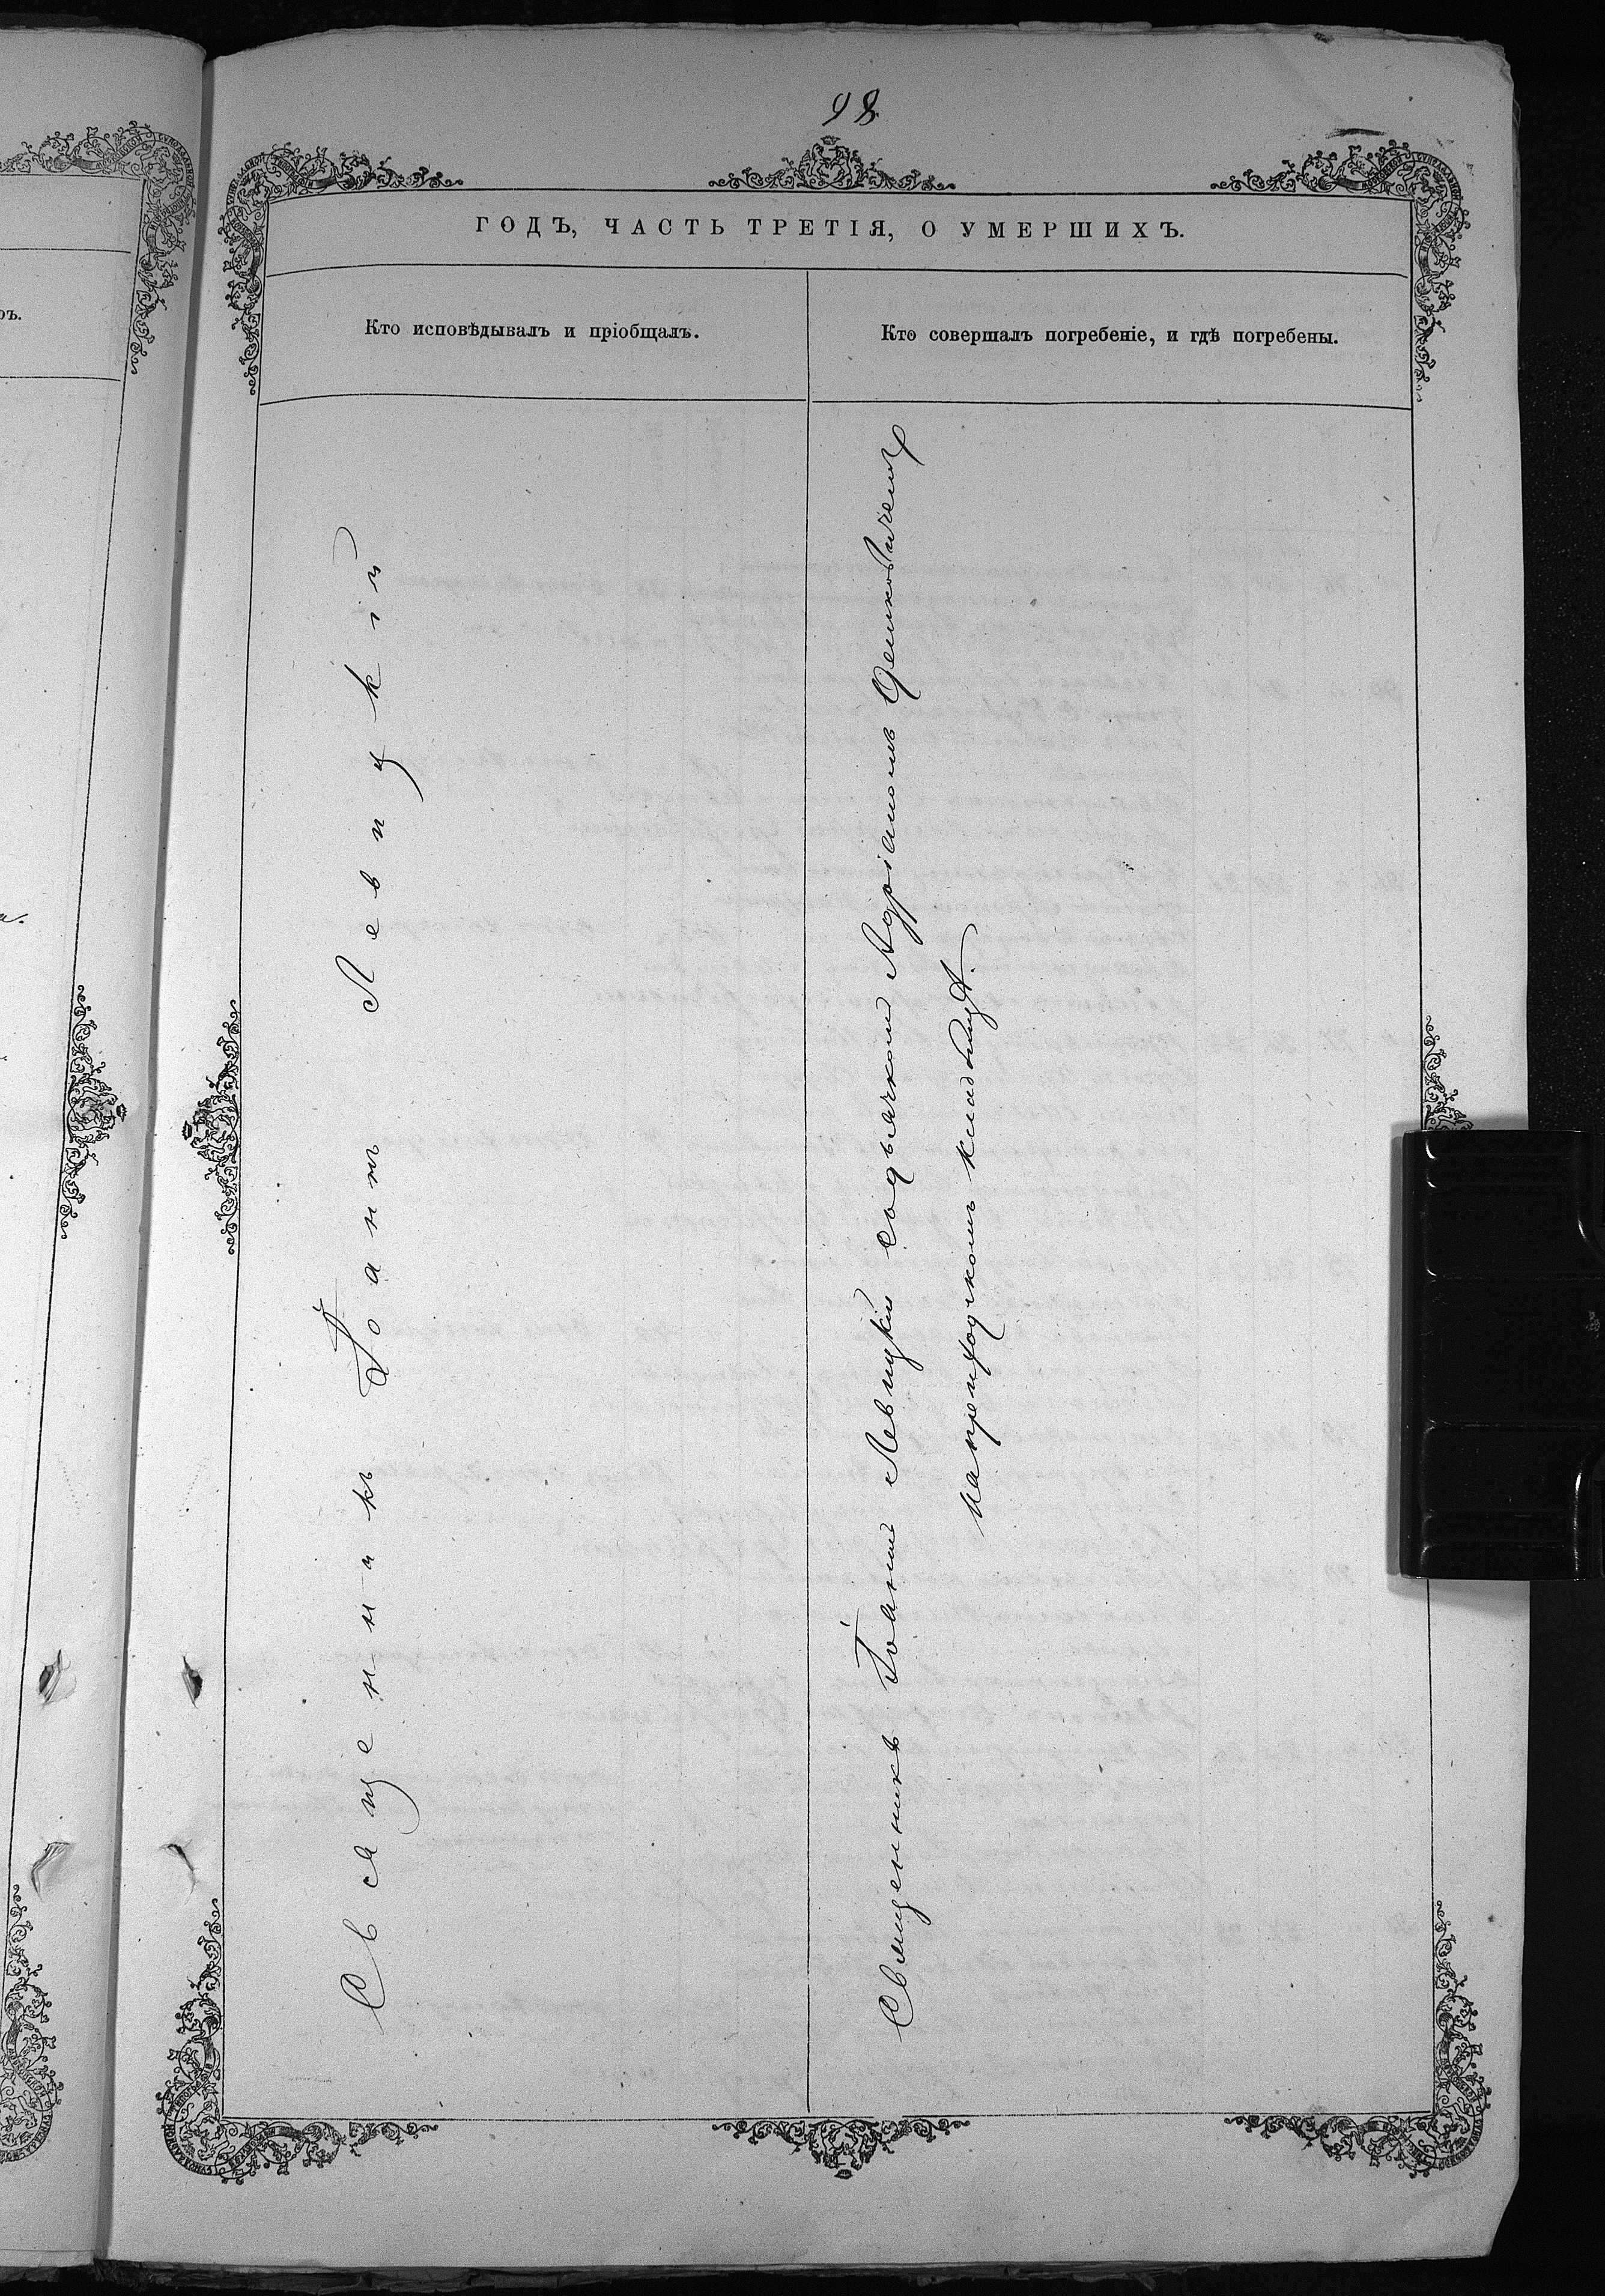 98
ГОДЪ, ЧАСТЬ ТРЕТІЯ, О УМЕРШИХЪ.
Кто исповѣдывалъ и пріобщалъ.
Кто совершалъ погребеніе, и гдѣ погребены.
Священникъ Іоаннъ Левицкій
Священникъ Іоаннъ Левицкій съ дьячкомъ Адріаномъ
на приходскомъ кладбищѣ.